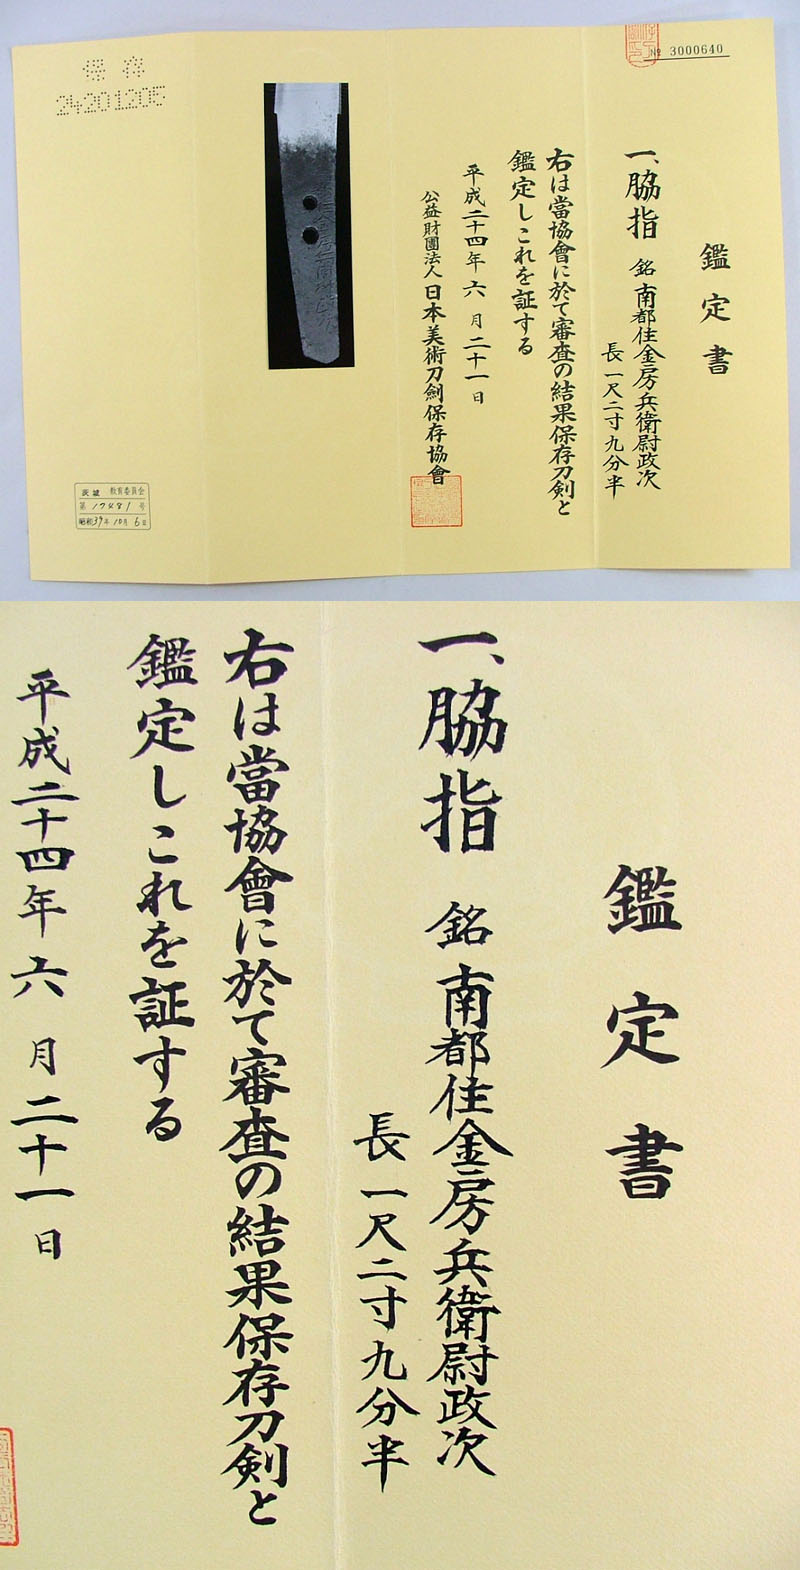 № 3000640
鑑定書
一、脇指 銘 南都住金房兵衛尉政次
長 一尺二寸九分半
右は當協會に於て審査の結果保存刀剣と
鑑定しこれを証する
平成二十四年六月二十一日
公益財團法人日本美術刀劍保存協會
保存
24201205
茨城 教育委員会
第 17481 号
昭和39年10月6日
鑑定書
一、脇指 銘 南都住金房兵衛尉政次
長 一尺二寸九分半
右は當協會に於て審査の結果保存刀剣と
鑑定しこれを証する
平成二十四年六月二十一日